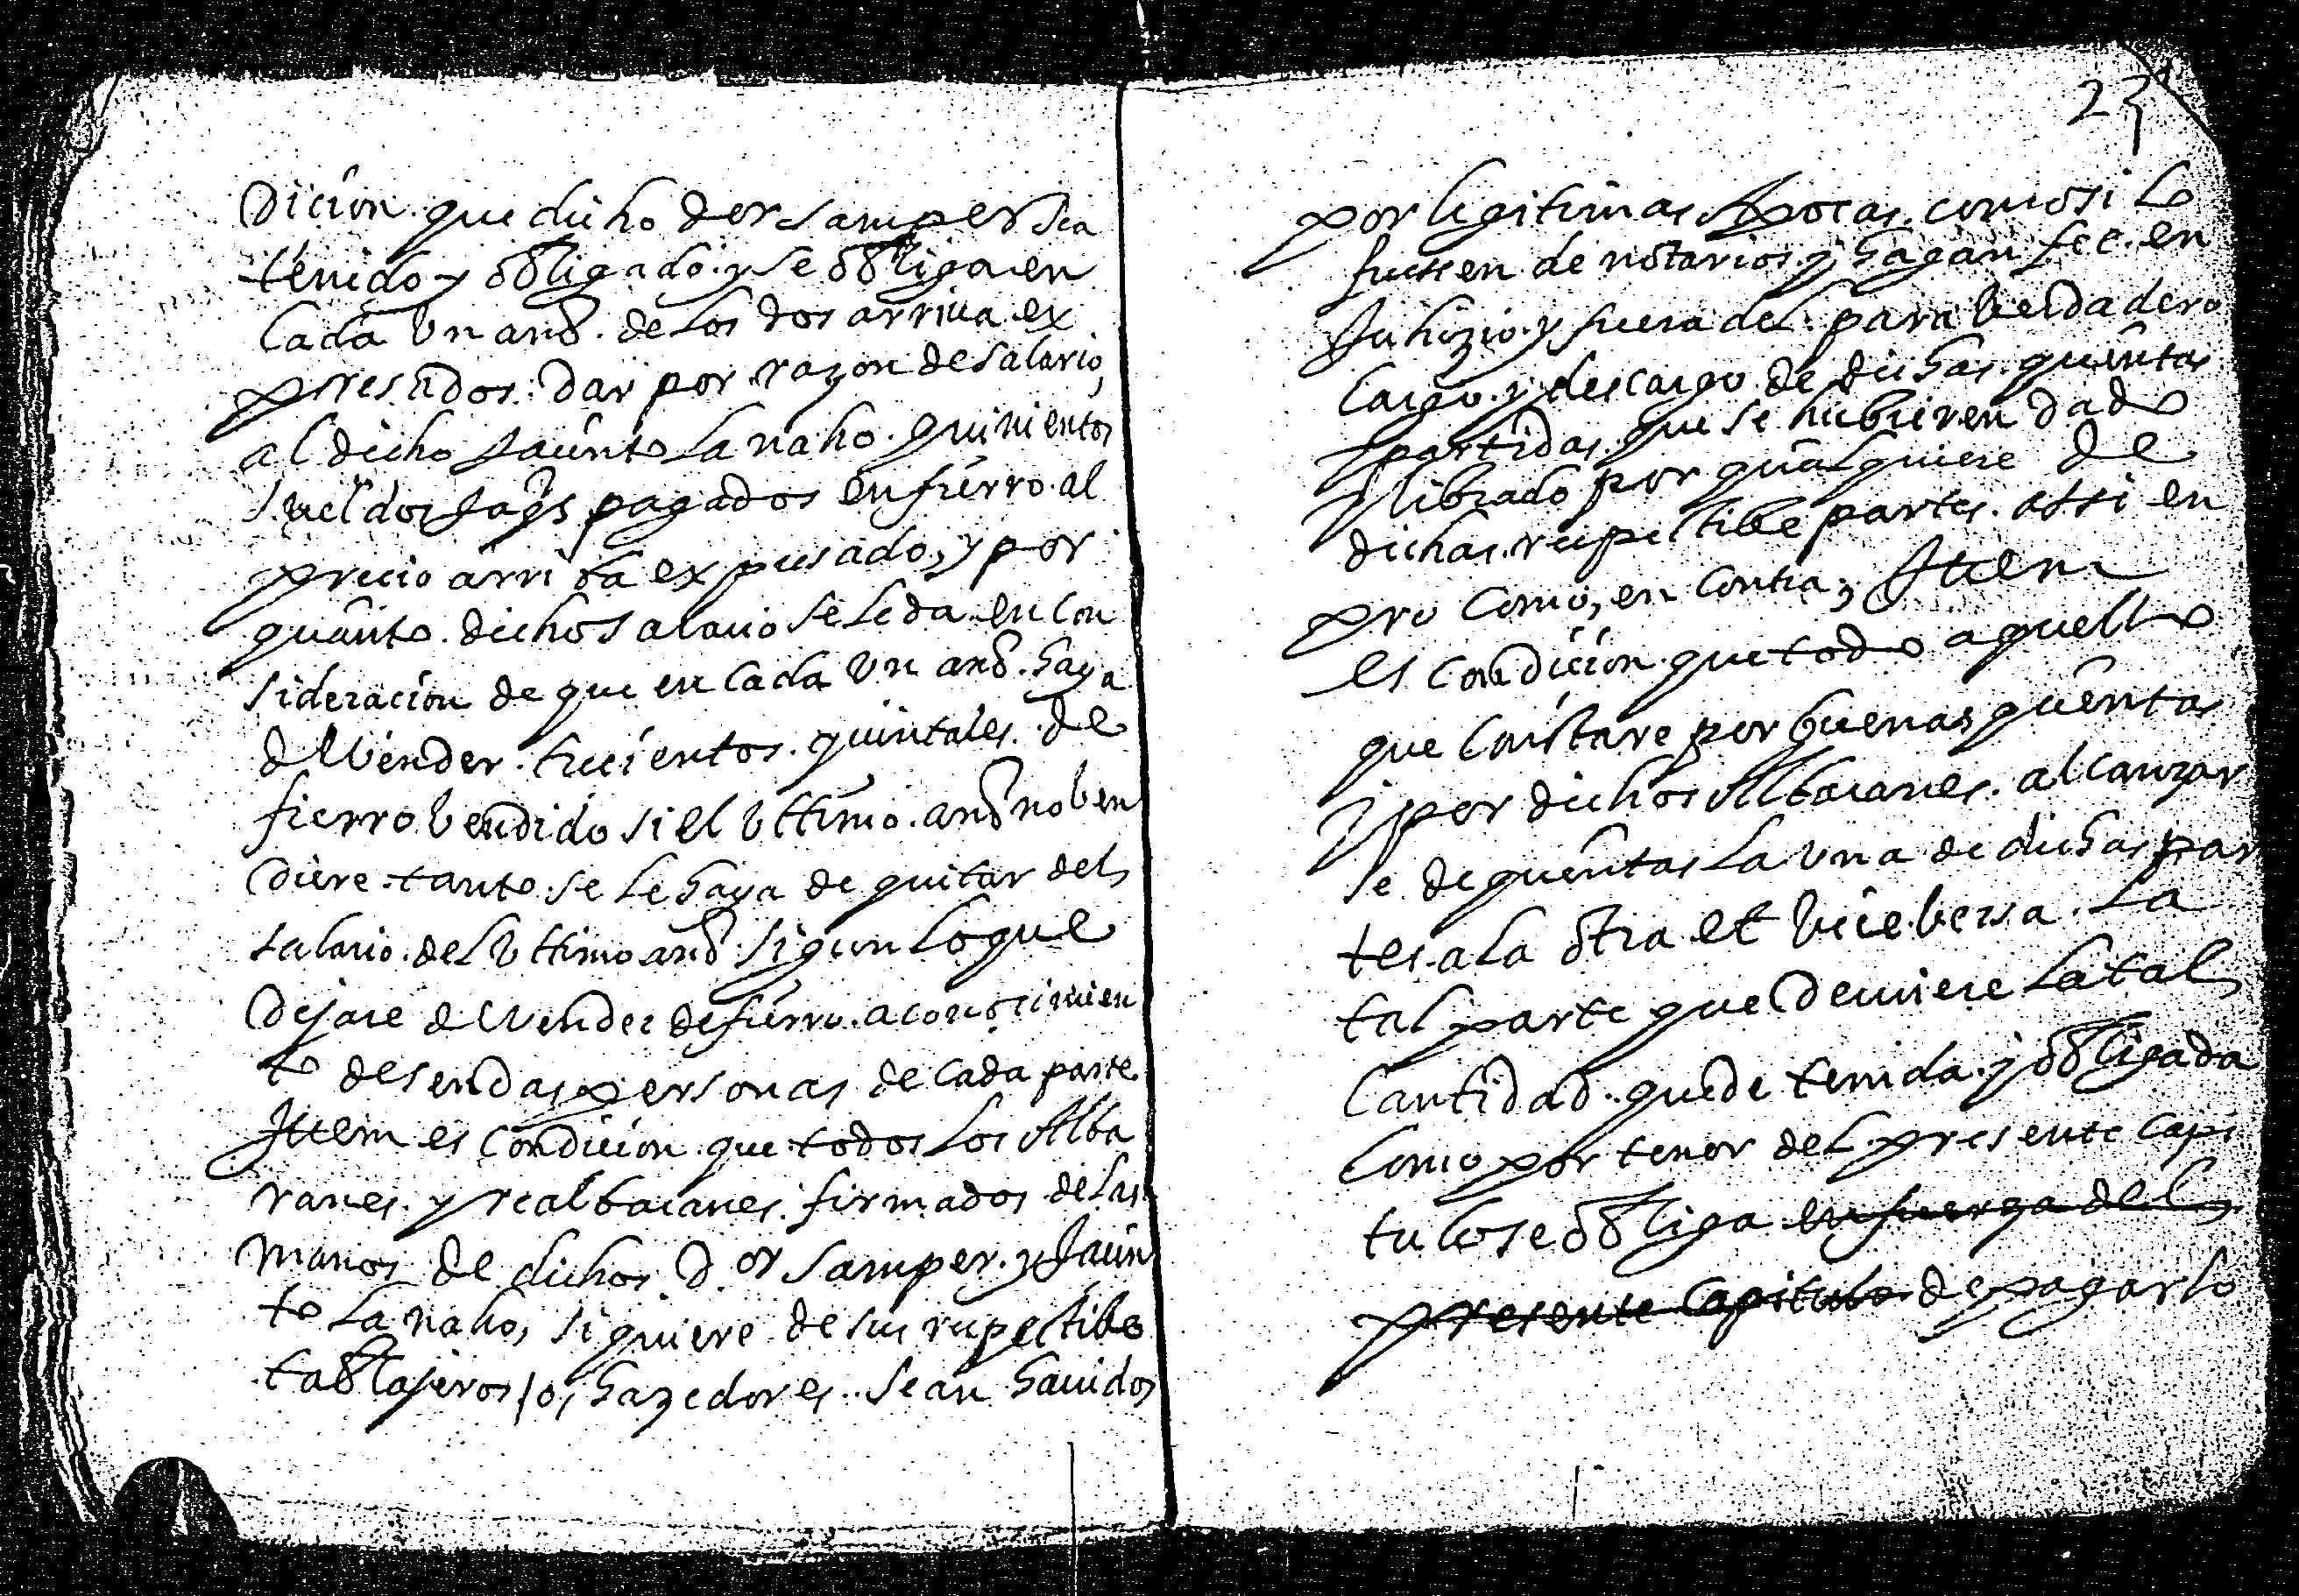 dicion. que dicho dor samper sea
tenido y obligado y se obliga en
cada vn año. de los dos arriua ex
presados: dar por razon de salario,
al dicho Jacinto Lanaho. quinientos
sueldos Jaqs pagados en fierro. al
precio arriba expresado, y por
quanto. dicho salario se le da en con
sideracion de que en cada vn año. haya
de Vender. trecientos. quintales. de
fierro Vendido si el Vttimo. año no ben
diere. tanto. se le haya de quitar del
salario. del Vttimo año sigun lo que
dejare de Vender de fierro. a conosimien
to de sendas personas de cada parte
Ittem es condicion. que todos los Alba
ranes. y realbaranes. firmados de las
manos de dichos Dor samper. y Jacin
to Lanaho, siquiere de sus respectibe
tablajeros /o, hazedores. sean hauidos
23
por legitimas Apocas. como si lo
fuessen de notarios y hagan fee. en
Juhizio. y fuera del. para berdadero
cargo. y descargo de dichas. quentas
partidas. que se hubieren dado
y librado por qualquiere de
dichas. respectibe partes. assi en
pro como, en contra, Ittem
es condicion. que todo aquello
que constare por buenas quentas
y por dichos Albaranes. alcanzar
se de quentas la vna de dichas par
tes. a la otra et Vice bersa. la
tal parte que deuiere la tal
cantidad. quede tenida. y obligada
como por tenor del presente capi
tulo se obliga en fuerza del
presente capitulo de pagarlo